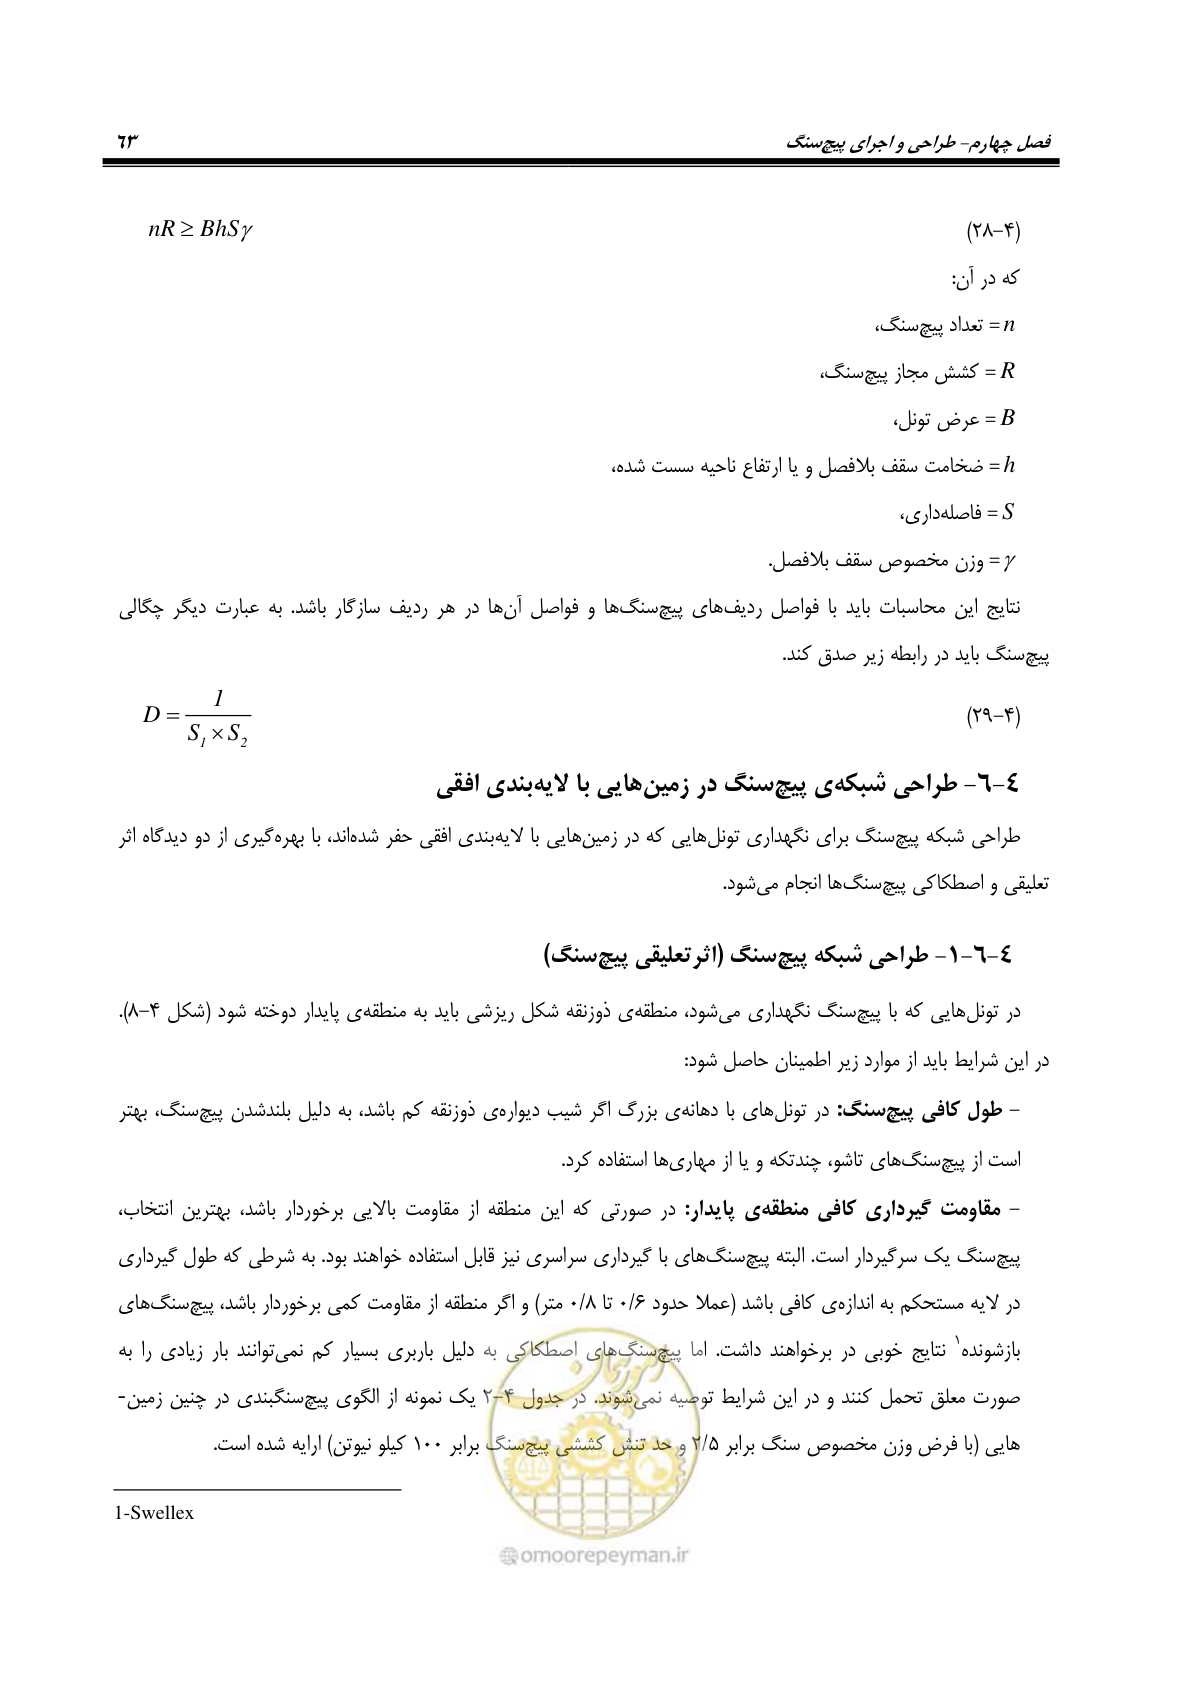 فصل چهارم- طراحی و اجرای پیچ‌سنگ ۶۳
(۴-۲۸) nR ≥ BhSγ
که در آن:
n = تعداد پیچ‌سنگ،
R = کشش مجاز پیچ‌سنگ،
B = عرض تونل،
h = ضخامت سقف بلافصل و یا ارتفاع ناحیه سست شده،
S = فاصله‌داری،
γ = وزن مخصوص سقف بلافصل.
نتایج این محاسبات باید با فواصل ردیف‌های پیچ‌سنگ‌ها و فواصل آن‌ها در هر ردیف سازگار باشد. به عبارت دیگر چگالی
پیچ‌سنگ باید در رابطه زیر صدق کند.
(۴-۲۹) D = 1 / (S₁ × S₂)
۴-۶- طراحی شبکه‌ی پیچ‌سنگ در زمین‌هایی با لایه‌بندی افقی
طراحی شبکه پیچ‌سنگ برای نگهداری تونل‌هایی که در زمین‌هایی با لایه‌بندی افقی حفر شده‌اند، با بهره‌گیری از دو دیدگاه اثر
تعلیقی و اصطکاکی پیچ‌سنگ‌ها انجام می‌شود.
۴-۶-۱- طراحی شبکه پیچ‌سنگ (اثر تعلیقی پیچ‌سنگ)
در تونل‌هایی که با پیچ‌سنگ نگهداری می‌شود، منطقه‌ی ذوزنقه شکل ریزشی باید به منطقه‌ی پایدار دوخته شود (شکل ۴-۸).
در این شرایط باید از موارد زیر اطمینان حاصل شود:
- طول کافی پیچ‌سنگ: در تونل‌های با دهانه‌ی بزرگ اگر شیب دیواره‌ی ذوزنقه کم باشد، به دلیل بلندشدن پیچ‌سنگ، بهتر
است از پیچ‌سنگ‌های تاشو، چندتکه و یا از مهاری‌ها استفاده کرد.
- مقاومت گیرداری کافی منطقه‌ی پایدار: در صورتی که این منطقه از مقاومت بالایی برخوردار باشد، بهترین انتخاب،
پیچ‌سنگ یک سرگیردار است. البته پیچ‌سنگ‌های با گیرداری سراسری نیز قابل استفاده خواهند بود. به شرطی که طول گیرداری
در لایه مستحکم به اندازه‌ی کافی باشد (عملا حدود ۰/۶ تا ۰/۸ متر) و اگر منطقه از مقاومت کمی برخوردار باشد، پیچ‌سنگ‌های
بازشونده¹ نتایج خوبی در برخواهند داشت. اما پیچ‌سنگ‌های اصطکاکی به دلیل باربری بسیار کم نمی‌توانند بار زیادی را به
صورت معلق تحمل کنند و در این شرایط توصیه نمی‌شوند. در جدول ۴-۲ یک نمونه از الگوی پیچ‌سنگبندی در چنین زمین-
هایی (با فرض وزن مخصوص سنگ برابر ۲/۵ و حد تنش کششی پیچ‌سنگ برابر ۱۰۰ کیلو نیوتن) ارایه شده است.
1-Swellex
امور پیمان
omoorepeyman.ir